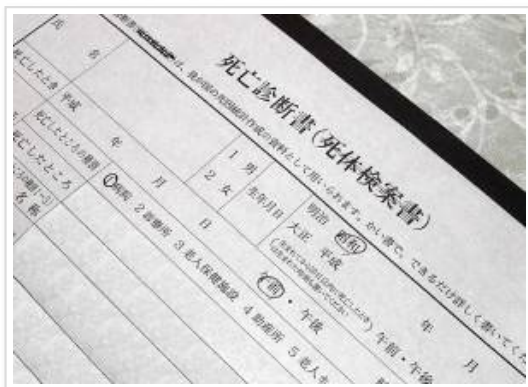 死亡診断書(死体検案書)
は、我が国の死因統計作成の資料として用いられます。かい書で、できるだけ詳しく書いてく
氏 名
1 男
2 女
生年月日
明治 昭和
大正 平成
年 月
午前・午後
死亡したとき 平成 年 月 日 午前・午後
死亡したところの種別
1病院 2診療所 3老人保健施設 4助産所 5老人ホ
死亡したところ
名 称